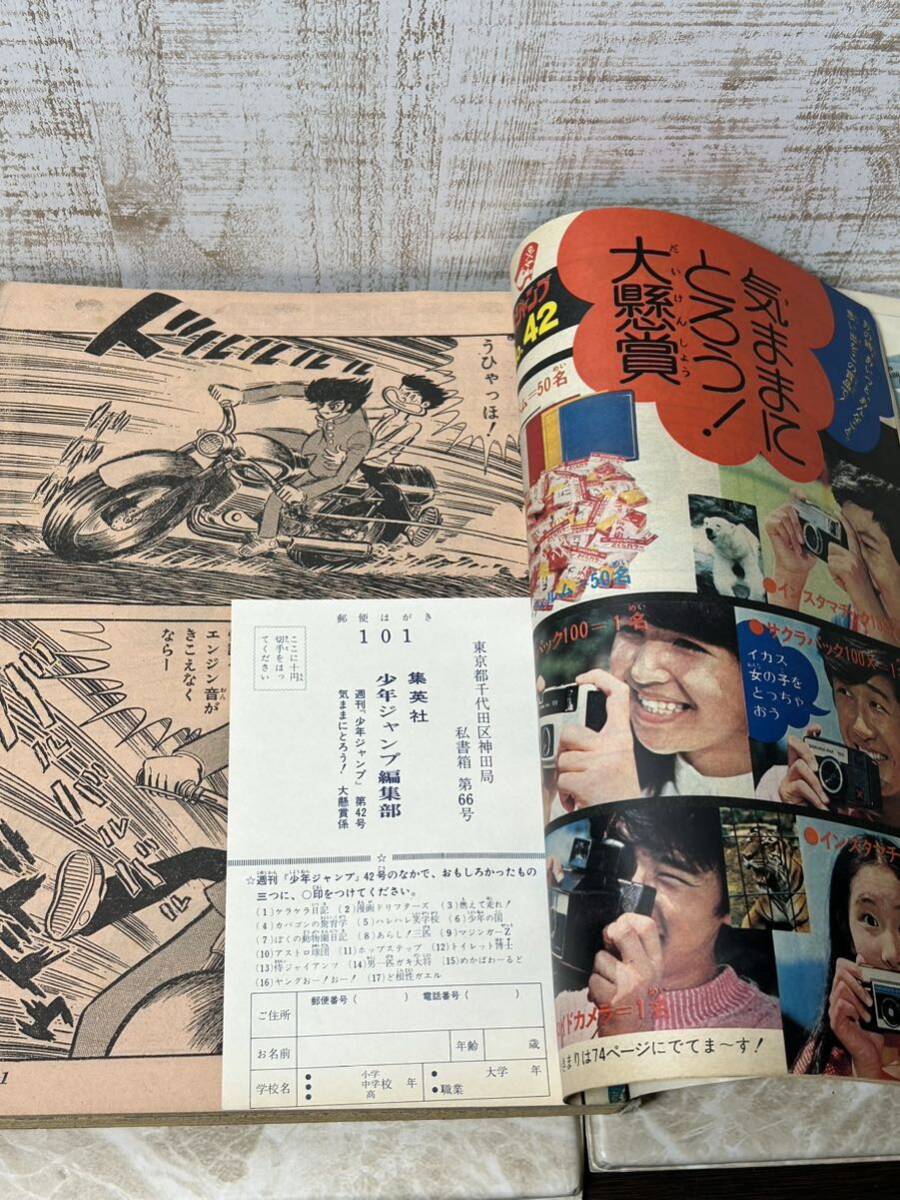 ドルルルルル
うひゃっほ！
エンジン音が
きこえなく
ならー
郵便はがき
101
ここに十円
切手をはっ
てください
東京都千代田区神田局
私書箱 第66号
集英社
少年ジャンプ編集部
週刊『少年ジャンプ』第42号
気ままにとろう！大懸賞係
☆週刊『少年ジャンプ』42号のなかで、おもしろかったもの
三つに、○印をつけてください。
(1)ケラケラ日記 (2)漫画ドリフターズ (3)燃えて走れ！
(4)カバゴンの放育学 (5)ハレハレ実学校 (6)少年の国
(7)ぼくの動物園日記 (8)あらし！三匹 (9)マジンガーZ
(10)アストロ球団 (11)ホップステップ (12)トイレット博士
(13)侍ジャイアンツ (14)男一匹ガキ大将 (15)めかぱわーるど
(16)ヤングおー！おー！ (17)ど根性ガエル
ご住所 郵便番号（ ） 電話番号（ ）
お名前 年齢 歳
学校名 小学 中学校 高 年 大学 年 職業
ジャンプ
42
気ままに
とろう！
大懸賞
ム=50名
ルム=50名
●インスタマチック
パック100=1名
●サクラパック100X=1
イカス
女の子を
とっちゃ
おう
●インスタマチ
イドカメラ=1名
きまりは74ページにでてま〜す！